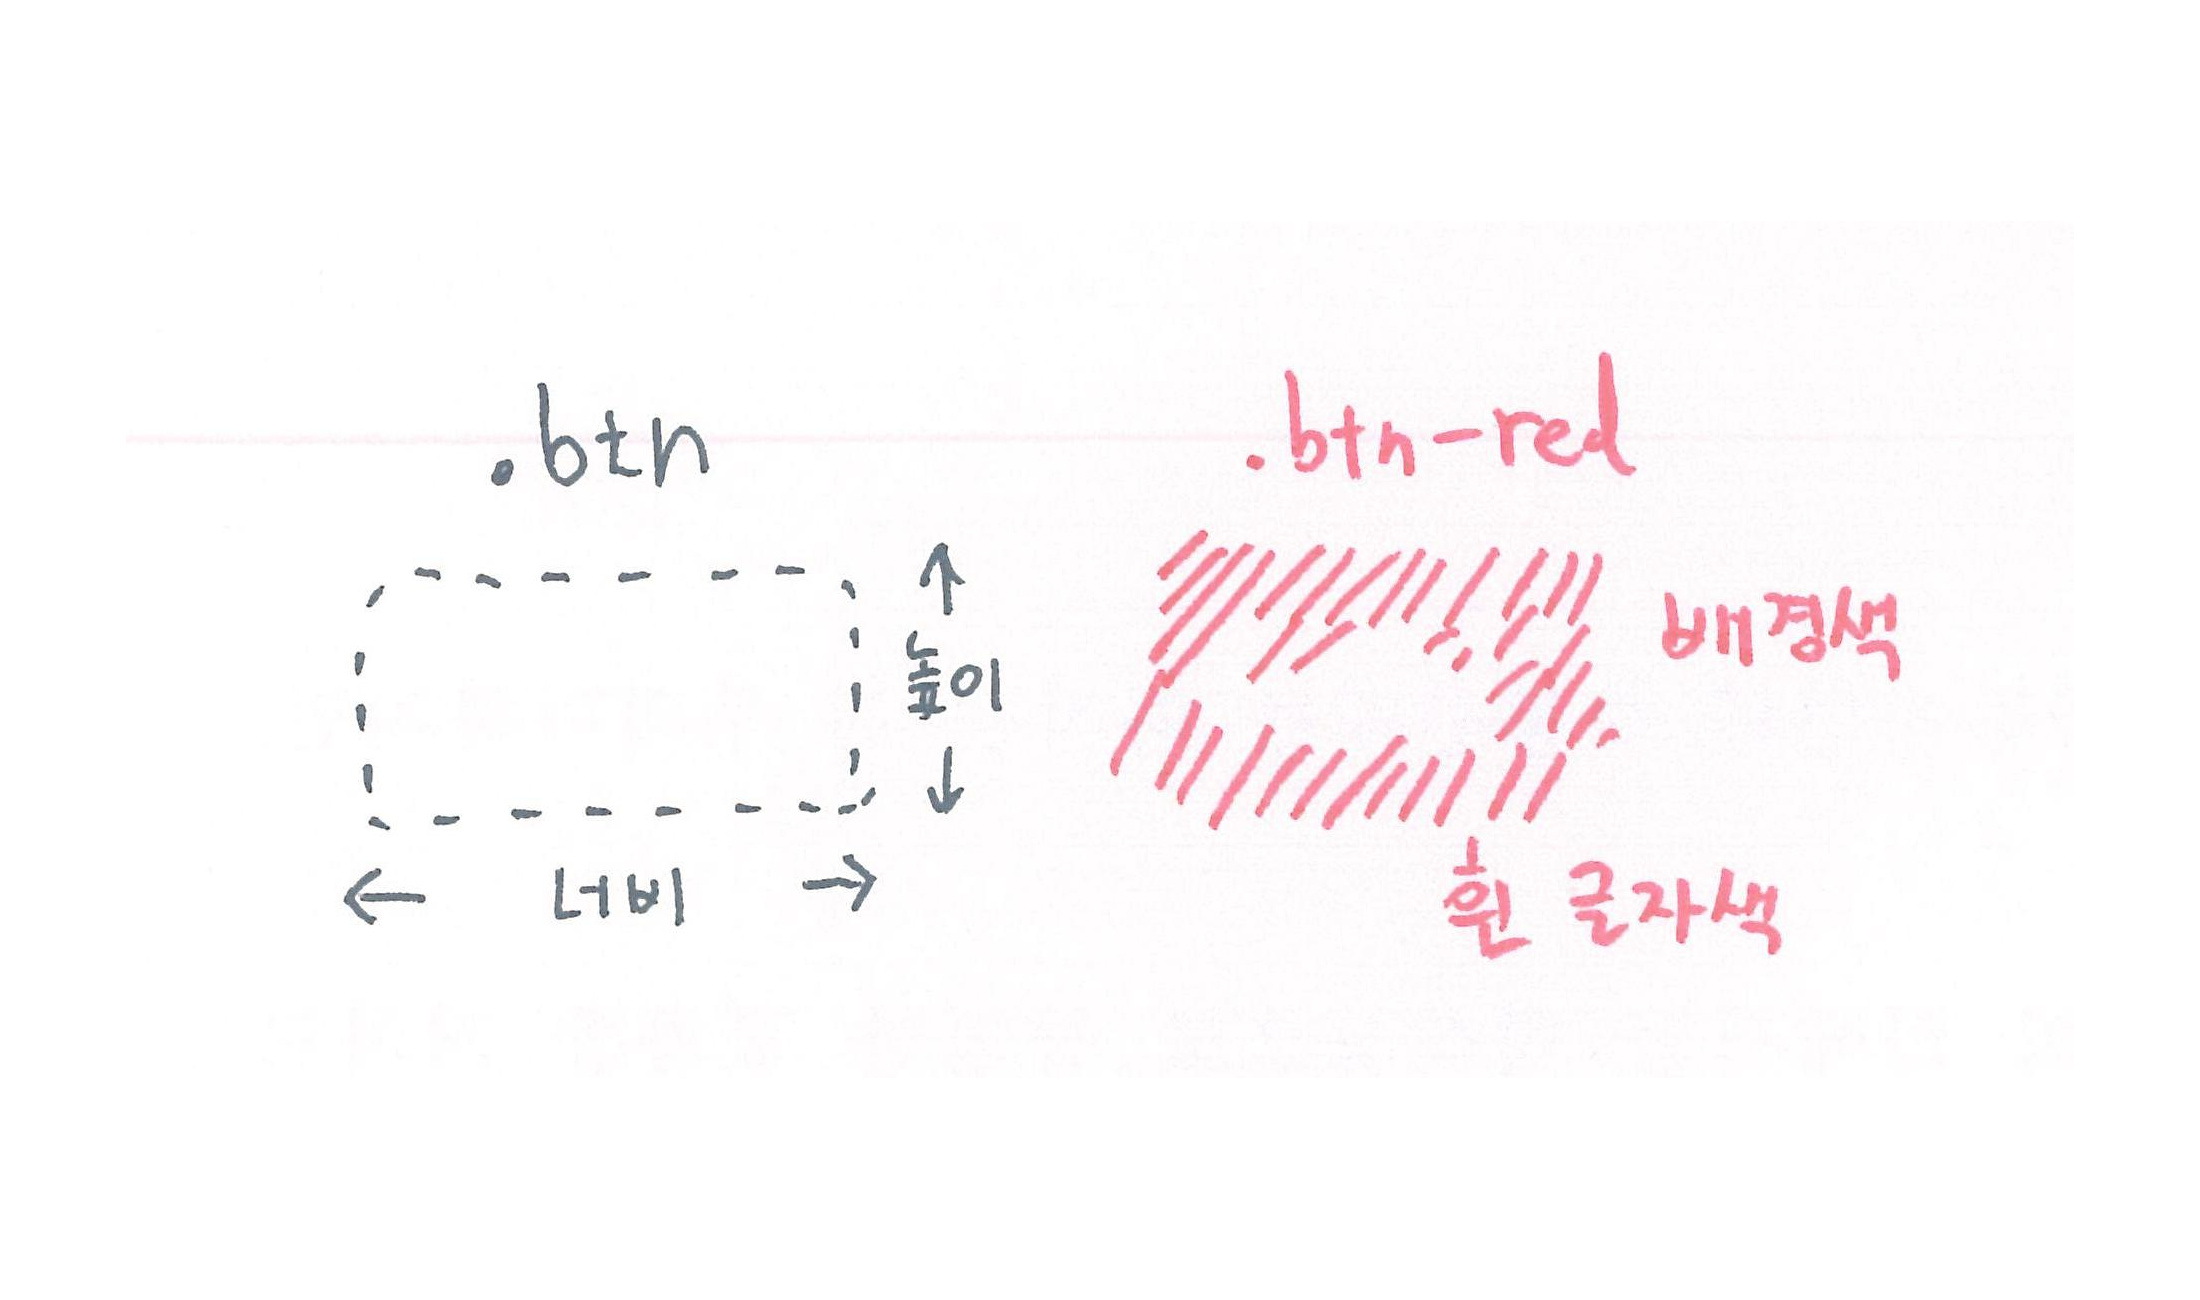 .btn
높이
너비
.btn-red
배경색
흰 글자색